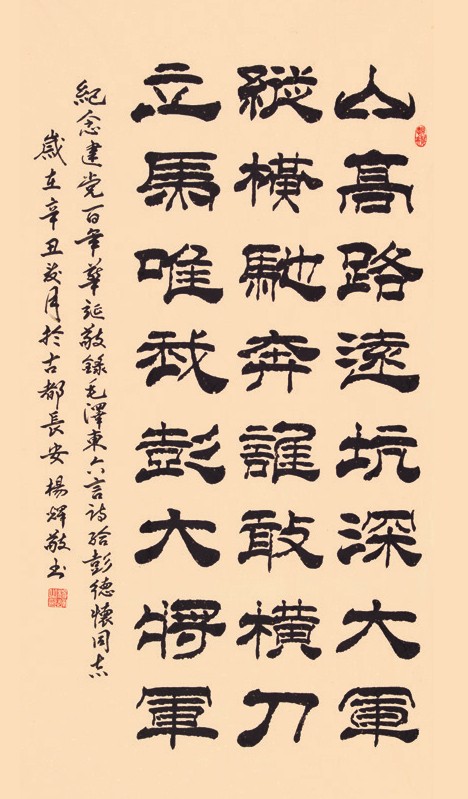 山高路遠坑深大軍
縱橫馳奔誰敢橫刀
立馬唯我彭大將軍
紀念建党百年華誕敬錄毛澤東六言詩給彭德懷同志
歲在辛丑月於古都長安楊輝敬書